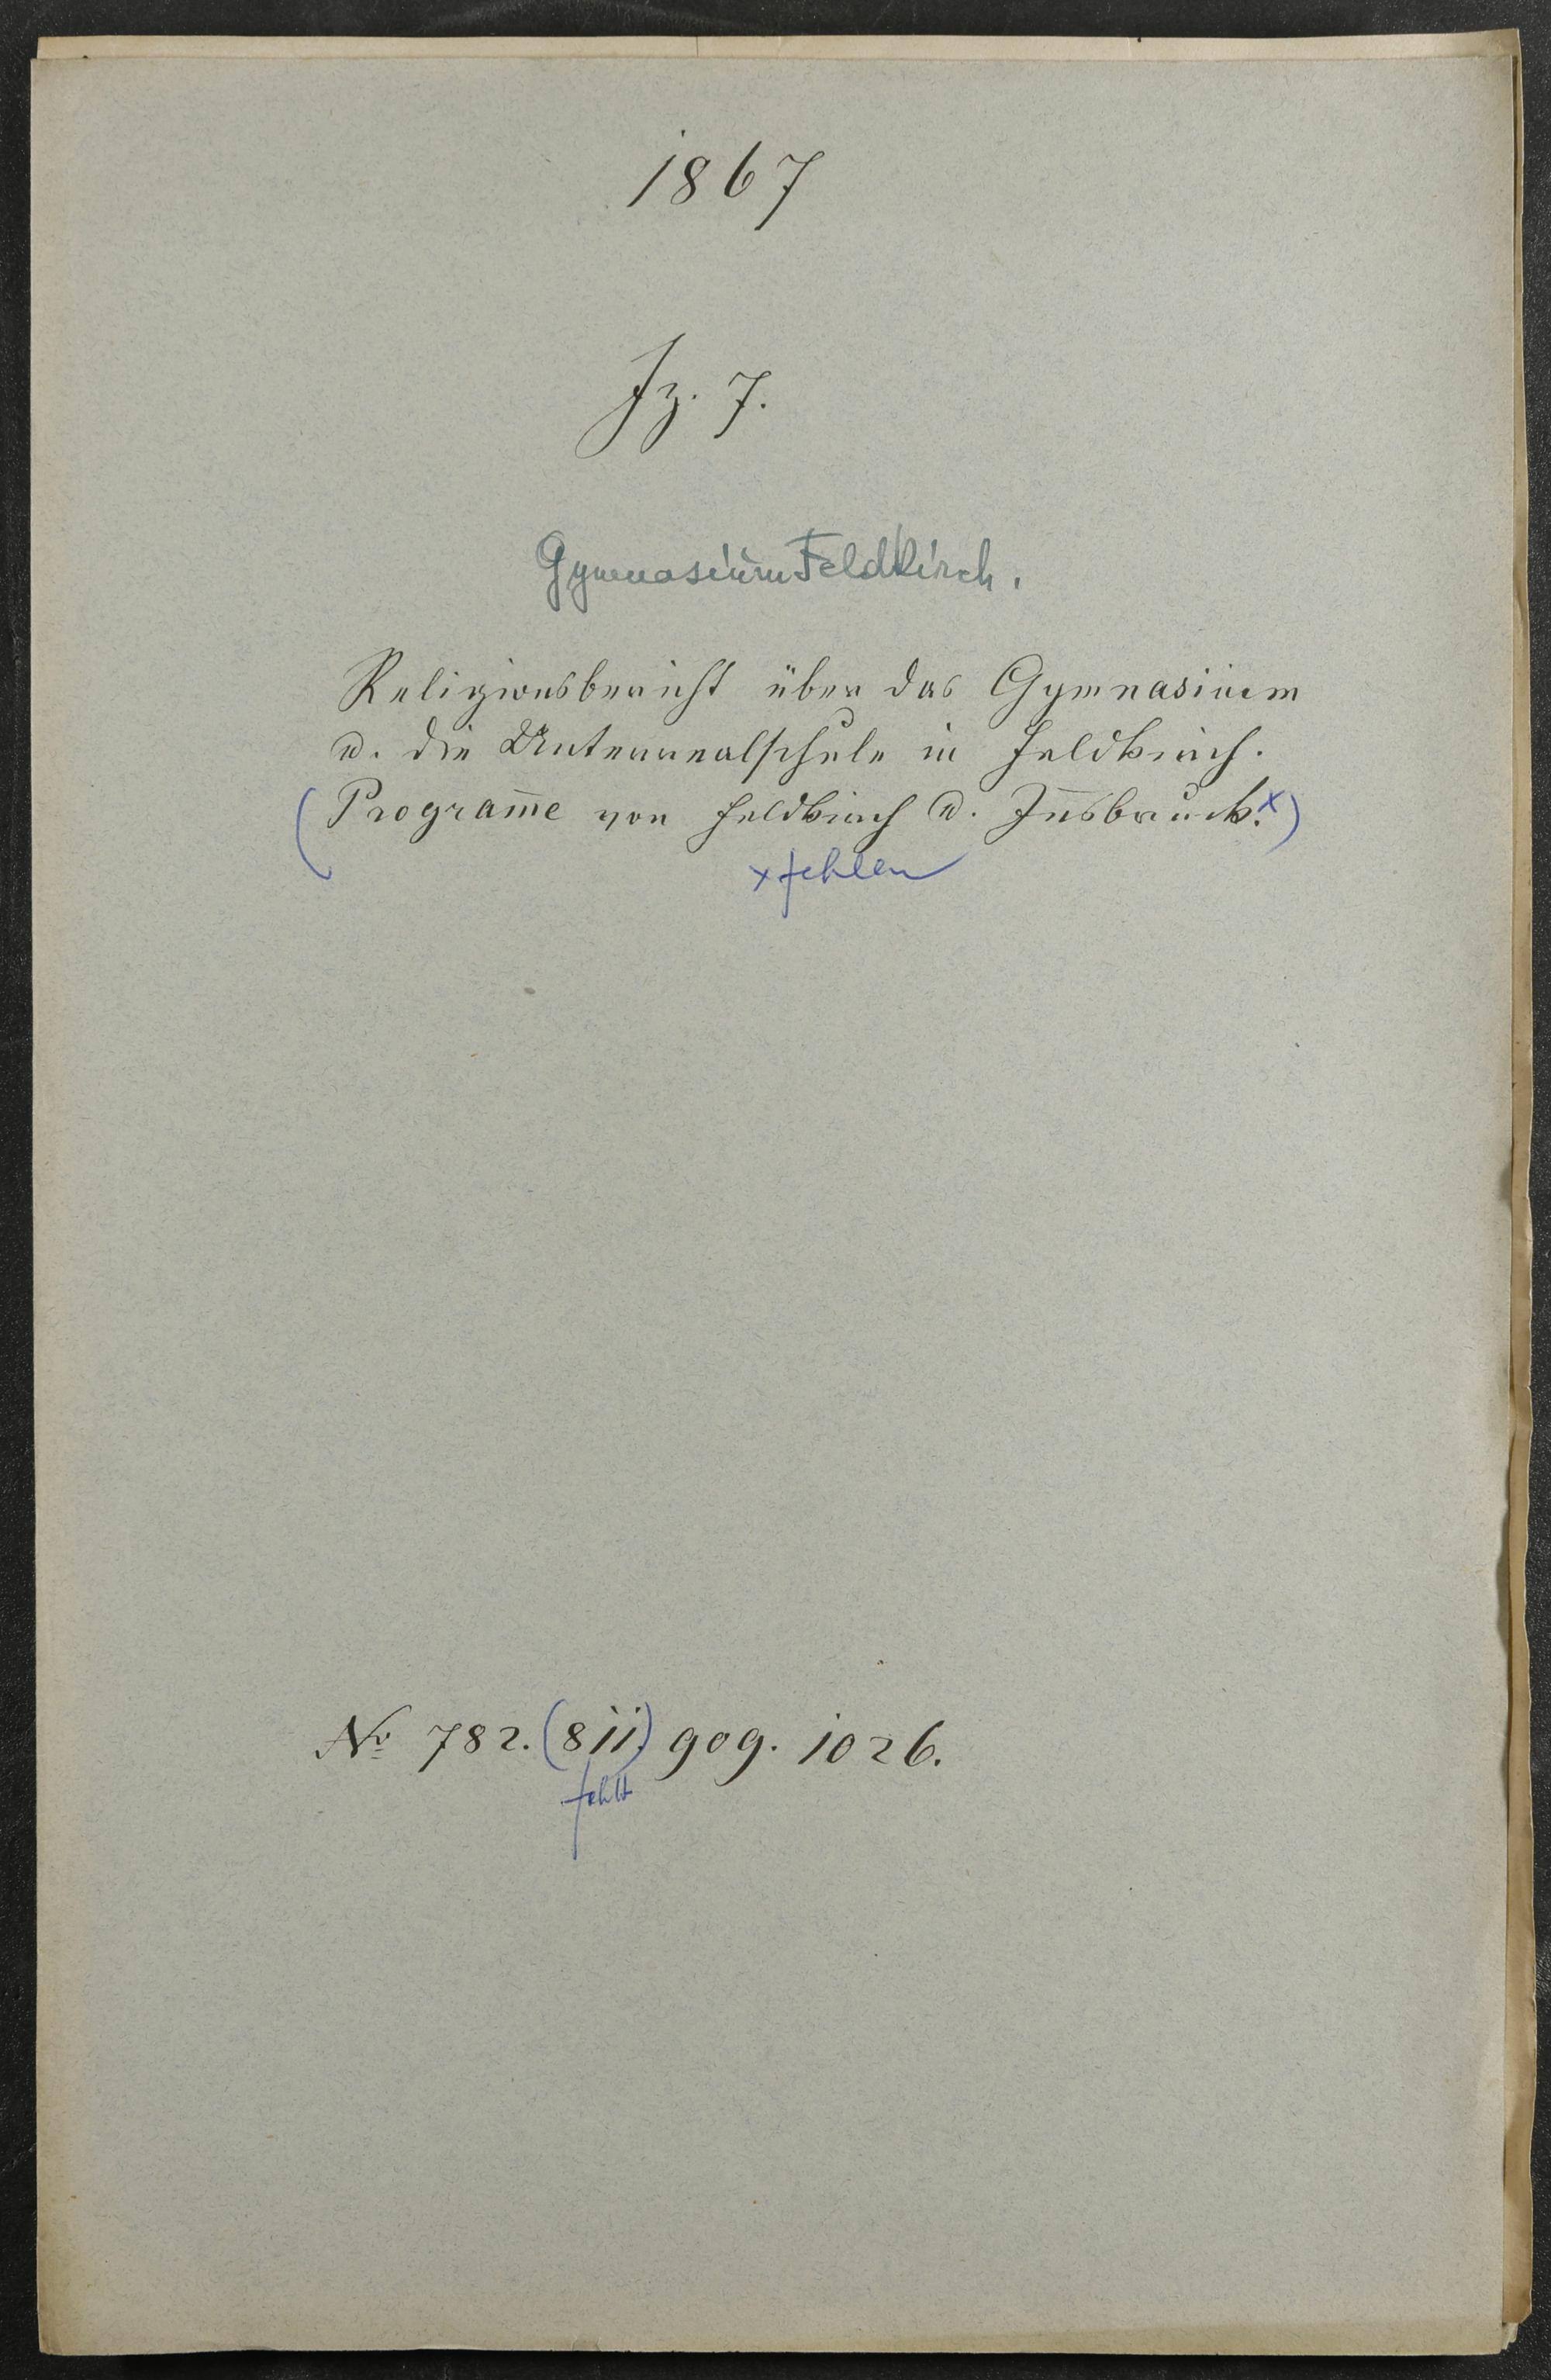 1867
Fz. 7.
Gymnasium Feldkirch.
Religionsbericht über das Gymnasium
u. die Unterrealschule in Feldkirch.
(Programm̄e von Feldkirch u. Inn̄sbruck.x)
x fehlen
No 782. (811.) 909. 1026.
fehlt